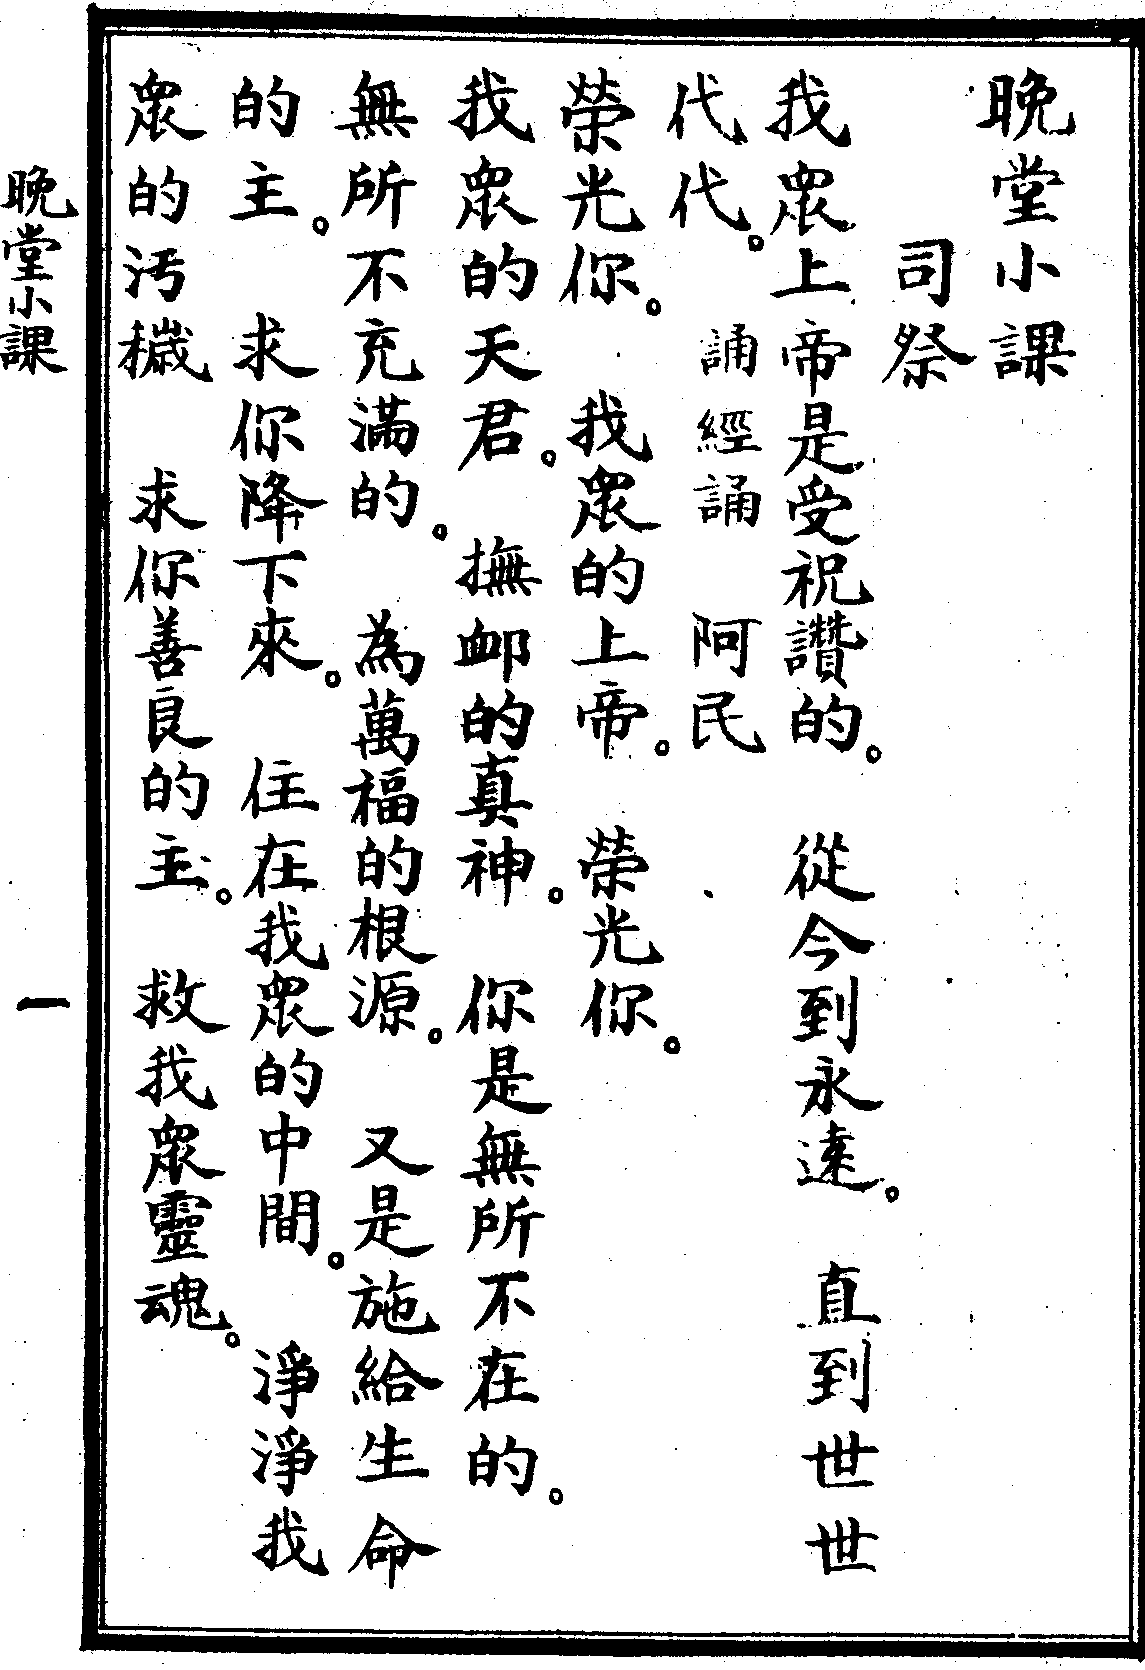 晚堂小課
司祭
我眾上帝是受祝讚的。 從今到永遠。 直到世世
代代。 誦經誦 阿民
榮光你。 我眾的上帝。 榮光你。
我眾的天君。 撫卹的真神。 你是無所不在的。
無所不充滿的。 為萬福的根源。 又是施給生命
的主。 求你降下來。 住在我眾的中間。 淨淨我
眾的污穢 求你善良的主。 救我眾靈魂。
晚堂小課 一